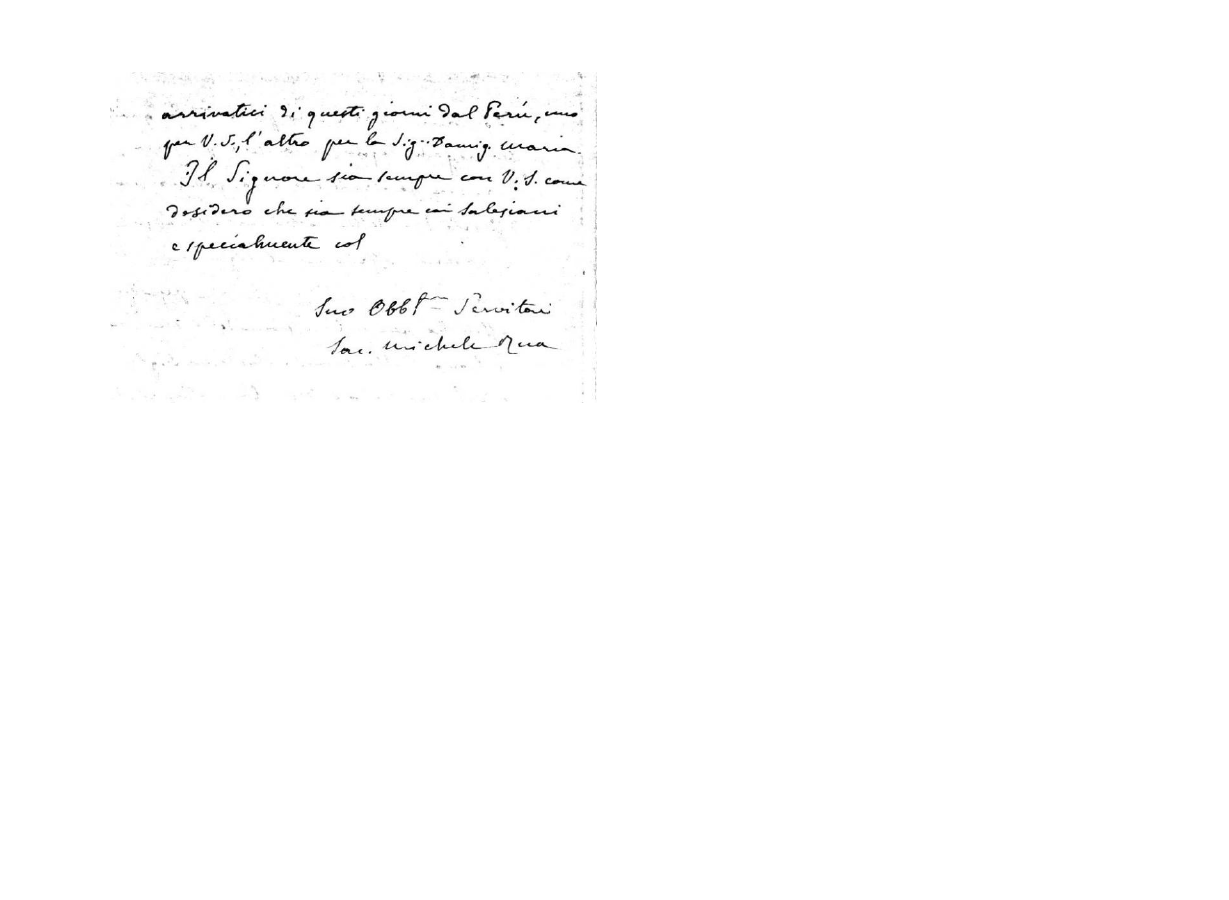 arrivatici di questi giorni dal Perú, uno
per V. S., l'altro per la Sig.ra Damig. Maria.
Il Signore sia sempre con V. S. come
desidero che sia sempre coi Salesiani
e specialmente col
Suo Obbl.mo Servitore
Sac. Michele Rua